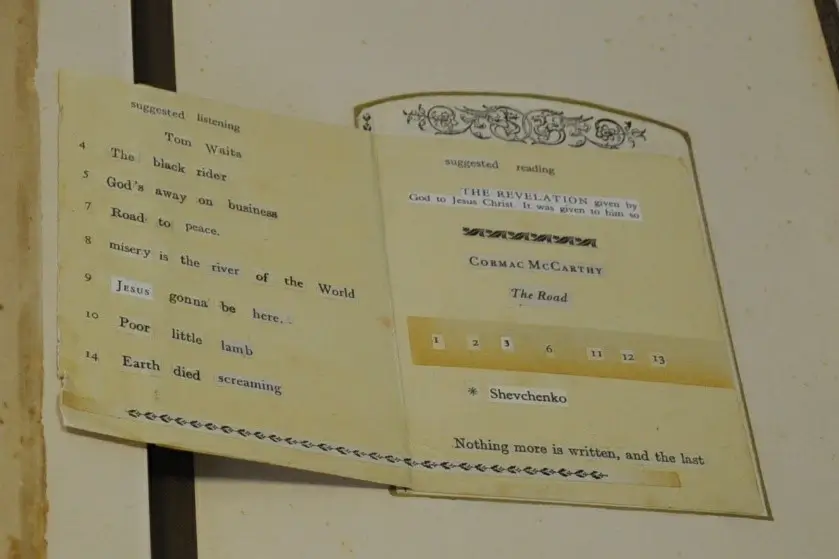 suggested listening
Tom Waits
4 The black rider
5 God's away on business
7 Road to peace.
8 misery is the river of the World
9 JESUS gonna be here..
10 Poor little lamb
14 Earth died screaming
suggested reading
THE REVELATION given by
God to Jesus Christ. It was given to him so
CORMAC MCCARTHY
The Road
1 2 3 6 11 12 13
* Shevchenko
Nothing more is written, and the last